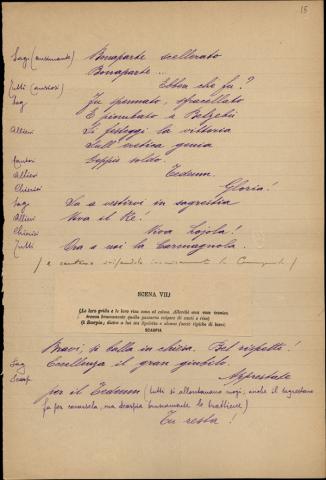 15
Sag (ansimante) Bonaparte scellerato
Bonaparte ...
Tutti (ansiosi) Ebben che fu?
Sag Fu spennato, sfracellato
È piombato a Belzebù
Allievi Si festeggi la vittoria
Sull'eretica genia
Cantori Doppio soldo.
Allievi Tedeum.
Chierici Gloria!
Sag. Va a vestirvi in sagrestia
Allievi Viva il Re!
Chierici Viva Lojola!
Tutti Ora a noi la Carmagnola.
SCENA VIIJ
(Le loro grida e le loro risa sono al colmo. Allorchè una voce ironica
tronca bruscamente quella gazzarra volgare di canti e risa)
(È Scarpia, dietro a lui
SCARPIA
Bravi, si balla in chiesa. Bel rispetto!
Sag Eccellenza il gran giubilo
Scarp. Apprestate
per il Tedeum (tutti si allontanano mogi, anche il sagrestano
fa per cavarsela, ma Scarpia bruscamente lo trattiene)
Tu resta!